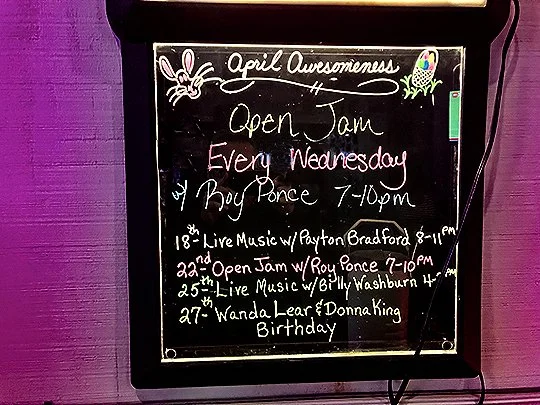 April Awesomeness
Open Jam
Every Wednesday
w/ Roy Ponce 7-10pm
18th Live Music w/ Payton Bradford 8-11PM
22nd Open Jam w/ Roy Ponce 7-10PM
25th Live Music w/ Billy Washburn 4-
27th Wanda Lear & Donna King
Birthday